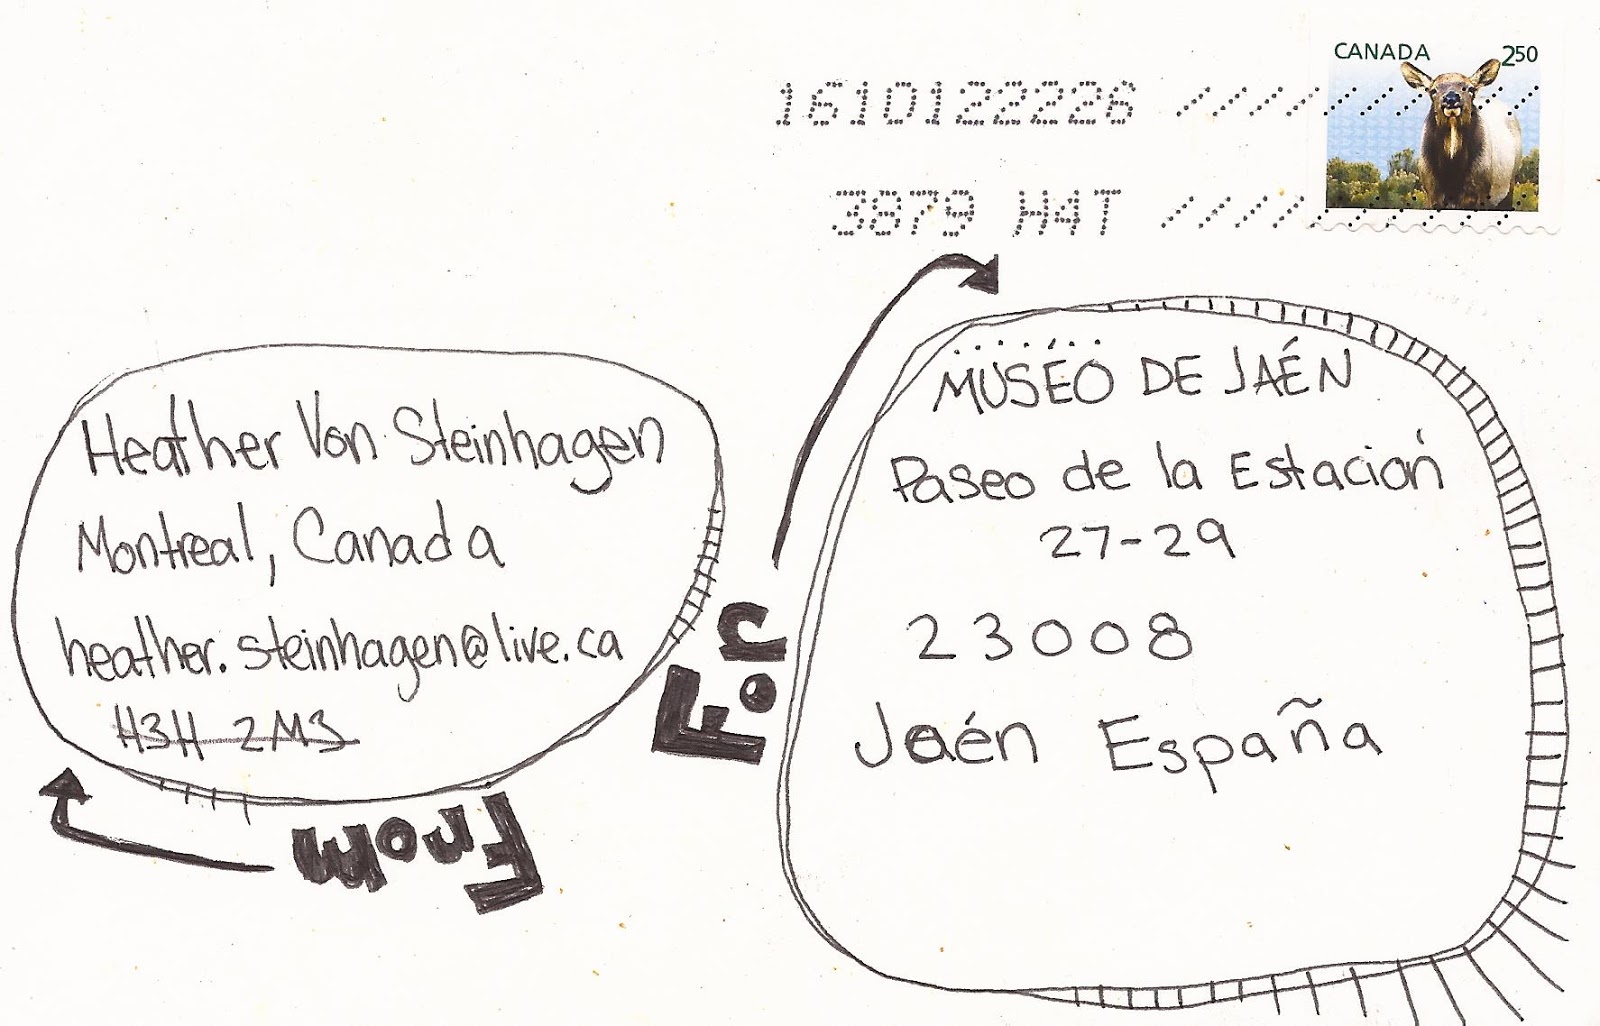 CANADA 250
1610122226
3879 H4T
MUSEO DE JAÉN
Paseo de la Estación
27-29
23008
Jaén España
For
Heather Von Steinhagen
Montreal, Canada
heather.steinhagen@live.ca
H3H 2M3
From